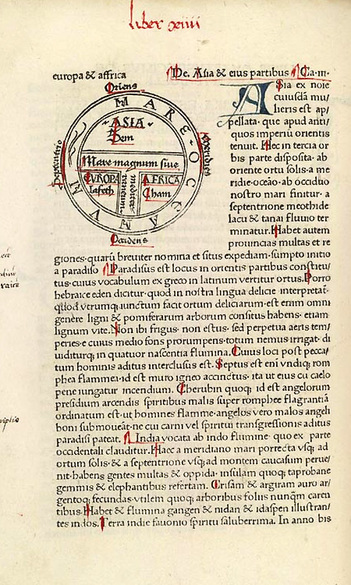 liber xiiii
europa & affrica
De. Asia & eius partibus Ca. iii.
Oriens
MARE OCEANUM
ASIA
Sem
Mare magnum siue
mediterraneum
EVROPA
Iafeth
AFRICA
Cham
Septentrio
Meridies
Occidens
Asia ex noie
cuiusdā mu
lieris est ap
pellata. que apud anti/
quos imperiū orientis
tenuit. Hec in tercia or
bis parte disposita. ab
oriente ortu solis. a me
ridie oceāo. ab occidūo
nostro mari finitur. a
septentrione meothide
lacu & tanai fluuio ter
minatur. Habet autem
prouincias multas et re
giones. quarū breuiter nomina et situs expediam. sumpto initio
a paradiso Paradisus est locus in orientis partibus constitu/
tus. cuius vocabulum ex greco in latinum vertitur ortus. Porro
hebraice eden dicitur. quod in nostra lingua delicie interpretat̄.
quod vtrumq; iunctum facit ortum deliciarum. est enim omni
genere ligni & pomiferarum arborum consitus habens. etiam
lignum vite. Non ibi frigus. non estus. sed perpetua aeris tem/
peries. e cuius medio fons prorumpens. totum nemus irrigat. di
uiditurq; in quatuor nascentia flumina. Cuius loci post pecca/
tum hominis aditus interclusus est. Septus est eni vndiq; rom
phea flammea. id est muro igneo accinctus. ita ut eius cū celo
pene iungatur incendium. Cherubin quoq; id est angelorum
presidium arcendis spiritibus malis super romphee flagrantiā
ordinatum est. ut homines flamme. angelos vero malos angeli
boni submoueāt. ne cui carni vel spiritui transgressionis aditus
paradisi pateat. India vocata ab indo flumine. quo ex parte
occidentali clauditur. Hec a meridiano mari porrecta vsq; ad
ortum solis. & a septentrione vsq; ad montem caucasum perue/
nit. habens gentes multas & oppida. insulam quoq; taprobane
gemmis & elephantibus refertam. Crisam & argiram auro ar/
gentoq; fecundas. vtilem quoq; arboribus foliis nunq̄m caren
tibus. Habet & flumina gangen & nidan & idaspen illustran/
tes indos. Terra indie fauonio spiritu saluberrima. In anno bis